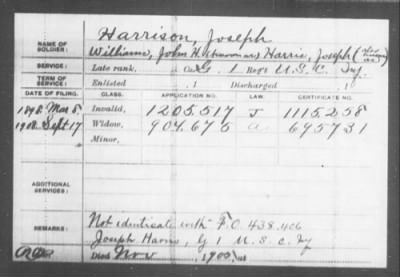 NAME OF SOLDIER: Harrison, Joseph
Williams, John H. (known as) Harris, Joseph (also known as)
SERVICE: Late rank, Co. G, 1 Reg't U.S.C. Inf.
TERM OF SERVICE: Enlisted , 1 Discharged , 1
DATE OF FILING. CLASS. APPLICATION NO. LAW. CERTIFICATE NO.
1898 Mar 5 Invalid, 1205.517 J 1115.258
1908 Sept 17 Widow, 904.675 a. 695731
Minor,
ADDITIONAL SERVICES:
REMARKS: Not identical with F.O. 438.406
Joseph Harris, G 1 U.S.C. Inf
Died Nov , 1900, at